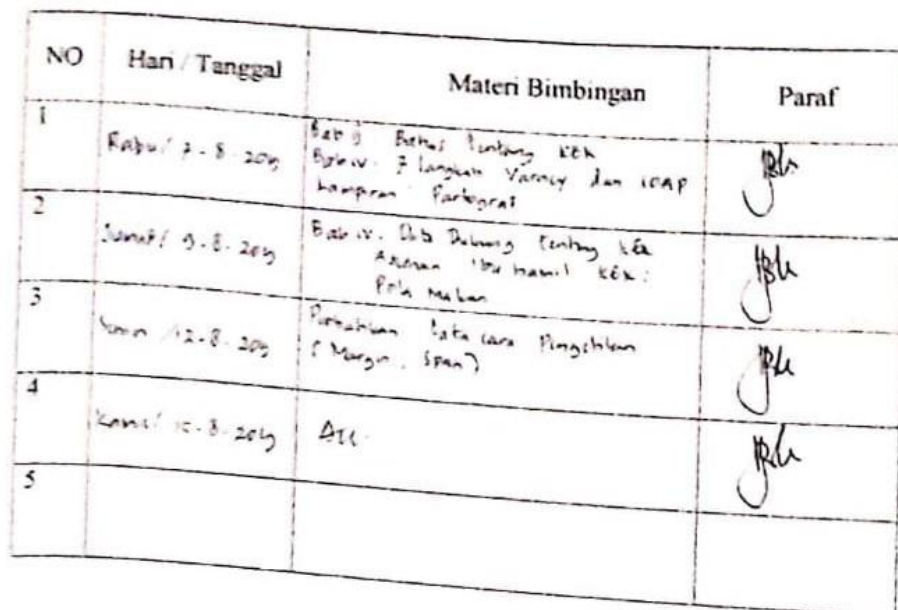 NO Hari / Tanggal Materi Bimbingan Paraf
1
Rabu / 7-8-2019
Bab Bahas tentang KEK
Bab IV. 7 langkah Varney dan SOAP
Lampiran Partograf
2
Jumat / 9-8-2019
Bab IV. Data Dukung tentang KEK
Asuhan Ibu hamil KEK:
Pola Makan
3
Senin / 12-8-2019
Perhatikan tata cara Pengetikan
(Margin, Span)
4
Kamis / 15-8-2019
ACC.
5